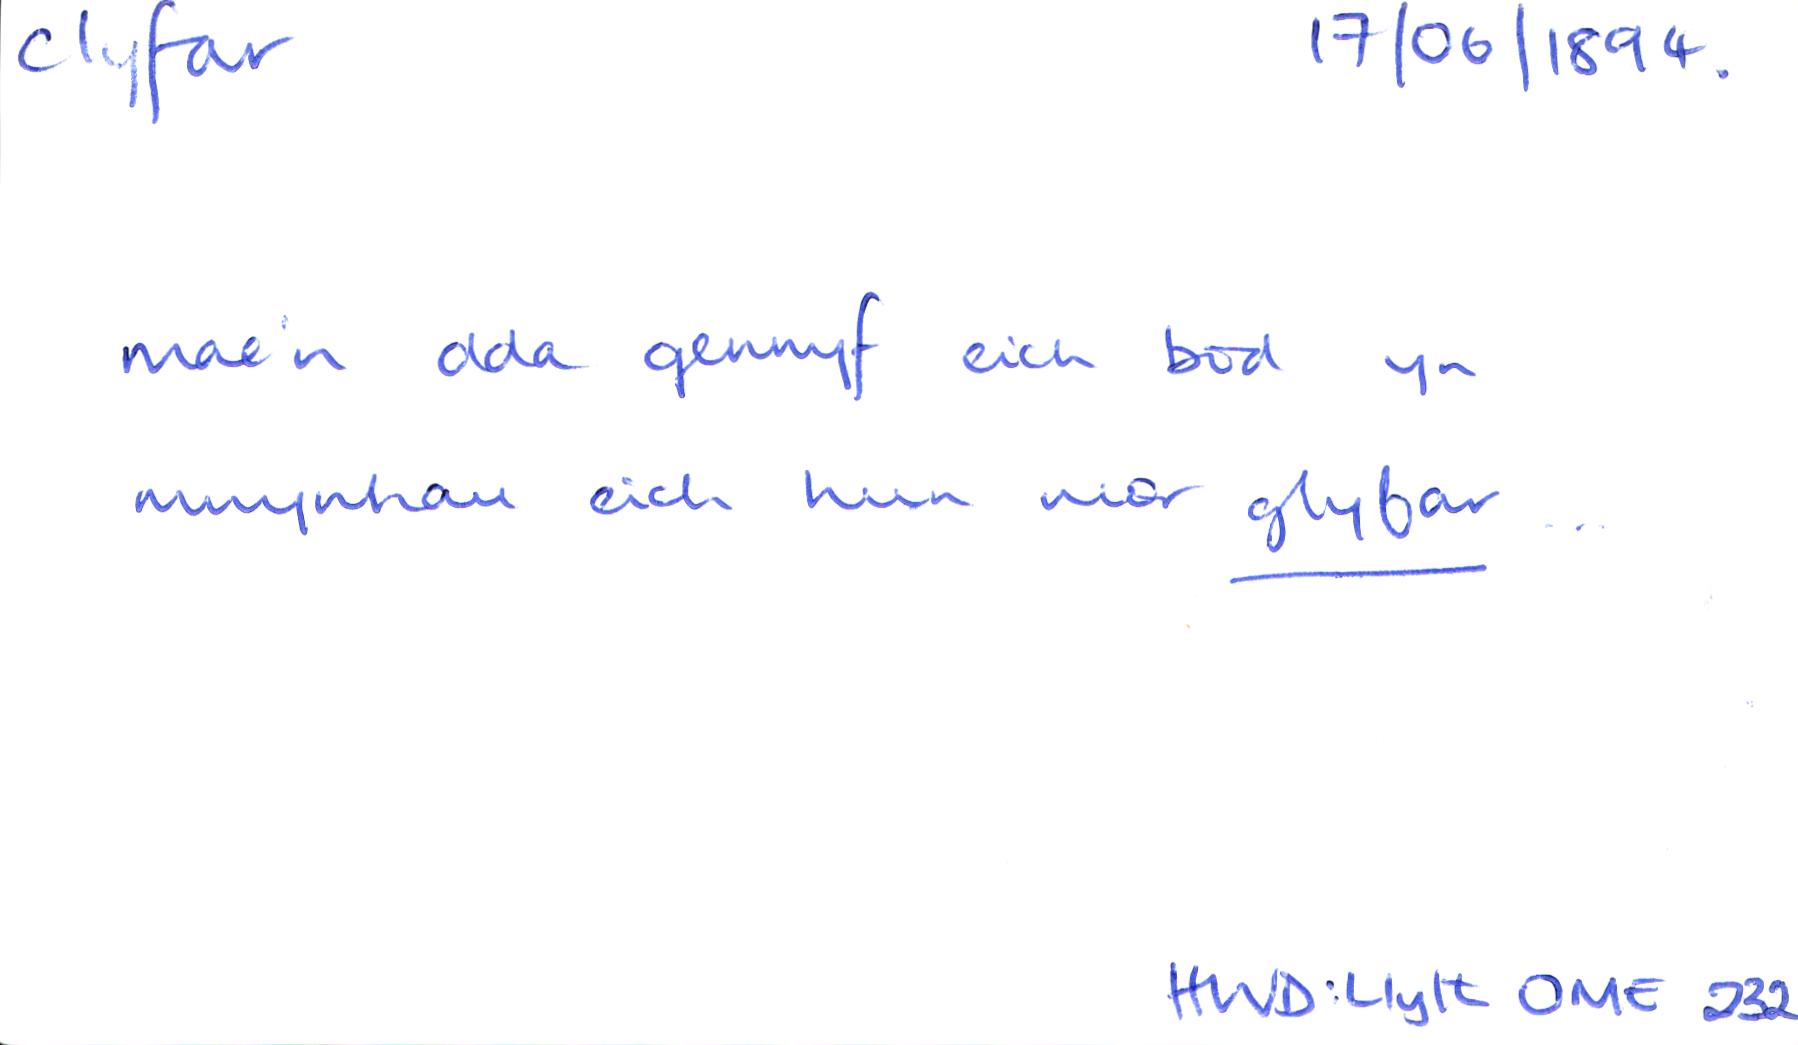 clyfar 17/06/1894.
mae'n dda gennyf eich bōd yn
mwynhau eich hun mōr glyfar ...
HWD:Llyll OME 232